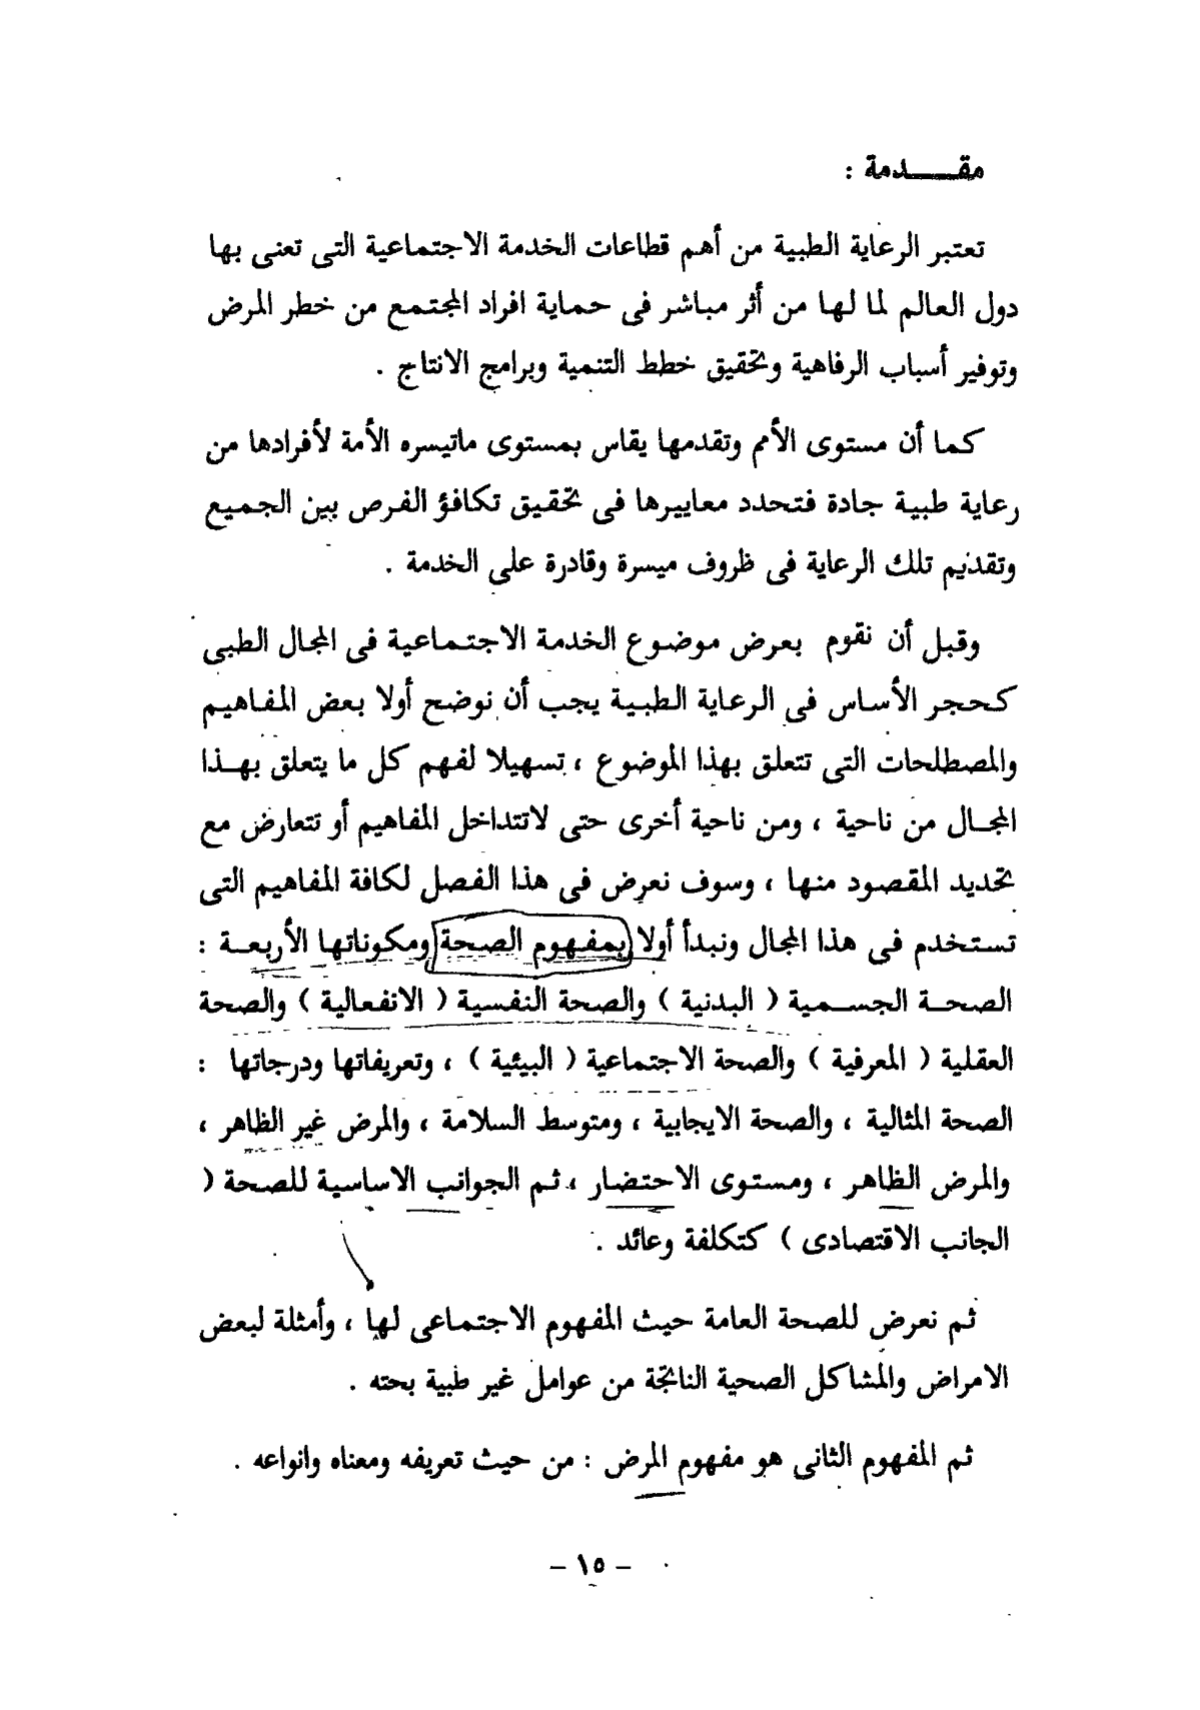 مقـــدمة :
تعتبر الرعاية الطبية من أهم قطاعات الخدمة الاجتماعية التى تعنى بها
دول العالم لما لها من أثر مباشر فى حماية افراد المجتمع من خطر المرض
وتوفير أسباب الرفاهية وتحقيق خطط التنمية وبرامج الانتاج .
كما أن مستوى الأمم وتقدمها يقاس بمستوى ماتيسره الأمة لأفرادها من
رعاية طبية جادة فتحدد معاييرها فى تحقيق تكافؤ الفرص بين الجميع
وتقديم تلك الرعاية فى ظروف ميسرة وقادرة على الخدمة .
وقبل أن نقوم بعرض موضوع الخدمة الاجتماعية فى المجال الطبى
كحجر الأساس فى الرعاية الطبية يجب أن نوضح أولا بعض المفاهيم
والمصطلحات التى تتعلق بهذا الموضوع ، تسهيلا لفهم كل ما يتعلق بهـذا
المجـال من ناحية ، ومن ناحية أخرى حتى لاتتداخل المفاهيم أو تتعارض مع
تحديد المقصود منها ، وسوف نعرض فى هذا الفصل لكافة المفاهيم التى
تستخدم فى هذا المجال ونبدأ أولا بمفهوم الصحة ومكوناتها الأربعـة :
الصحـة الجسـمية ( البدنية ) والصحة النفسية ( الانفعالية ) والصحة
العقلية ( المعرفية ) والصحة الاجتماعية ( البيئية ) ، وتعريفاتها ودرجاتها :
الصحة المثالية ، والصحة الايجابية ، ومتوسط السلامة ، والمرض غير الظاهر ،
والمرض الظاهر ، ومستوى الاحتضار ، ثم الجوانب الاساسية للصحة (
الجانب الاقتصادى ) كتكلفة وعائد .
ثم نعرض للصحة العامة حيث المفهوم الاجتماعى لها ، وأمثلة لبعض
الامراض والمشاكل الصحية الناتجة من عوامل غير طبية بحته .
ثم المفهوم الثانى هو مفهوم المرض : من حيث تعريفه ومعناه وانواعه .
– ١٥ –